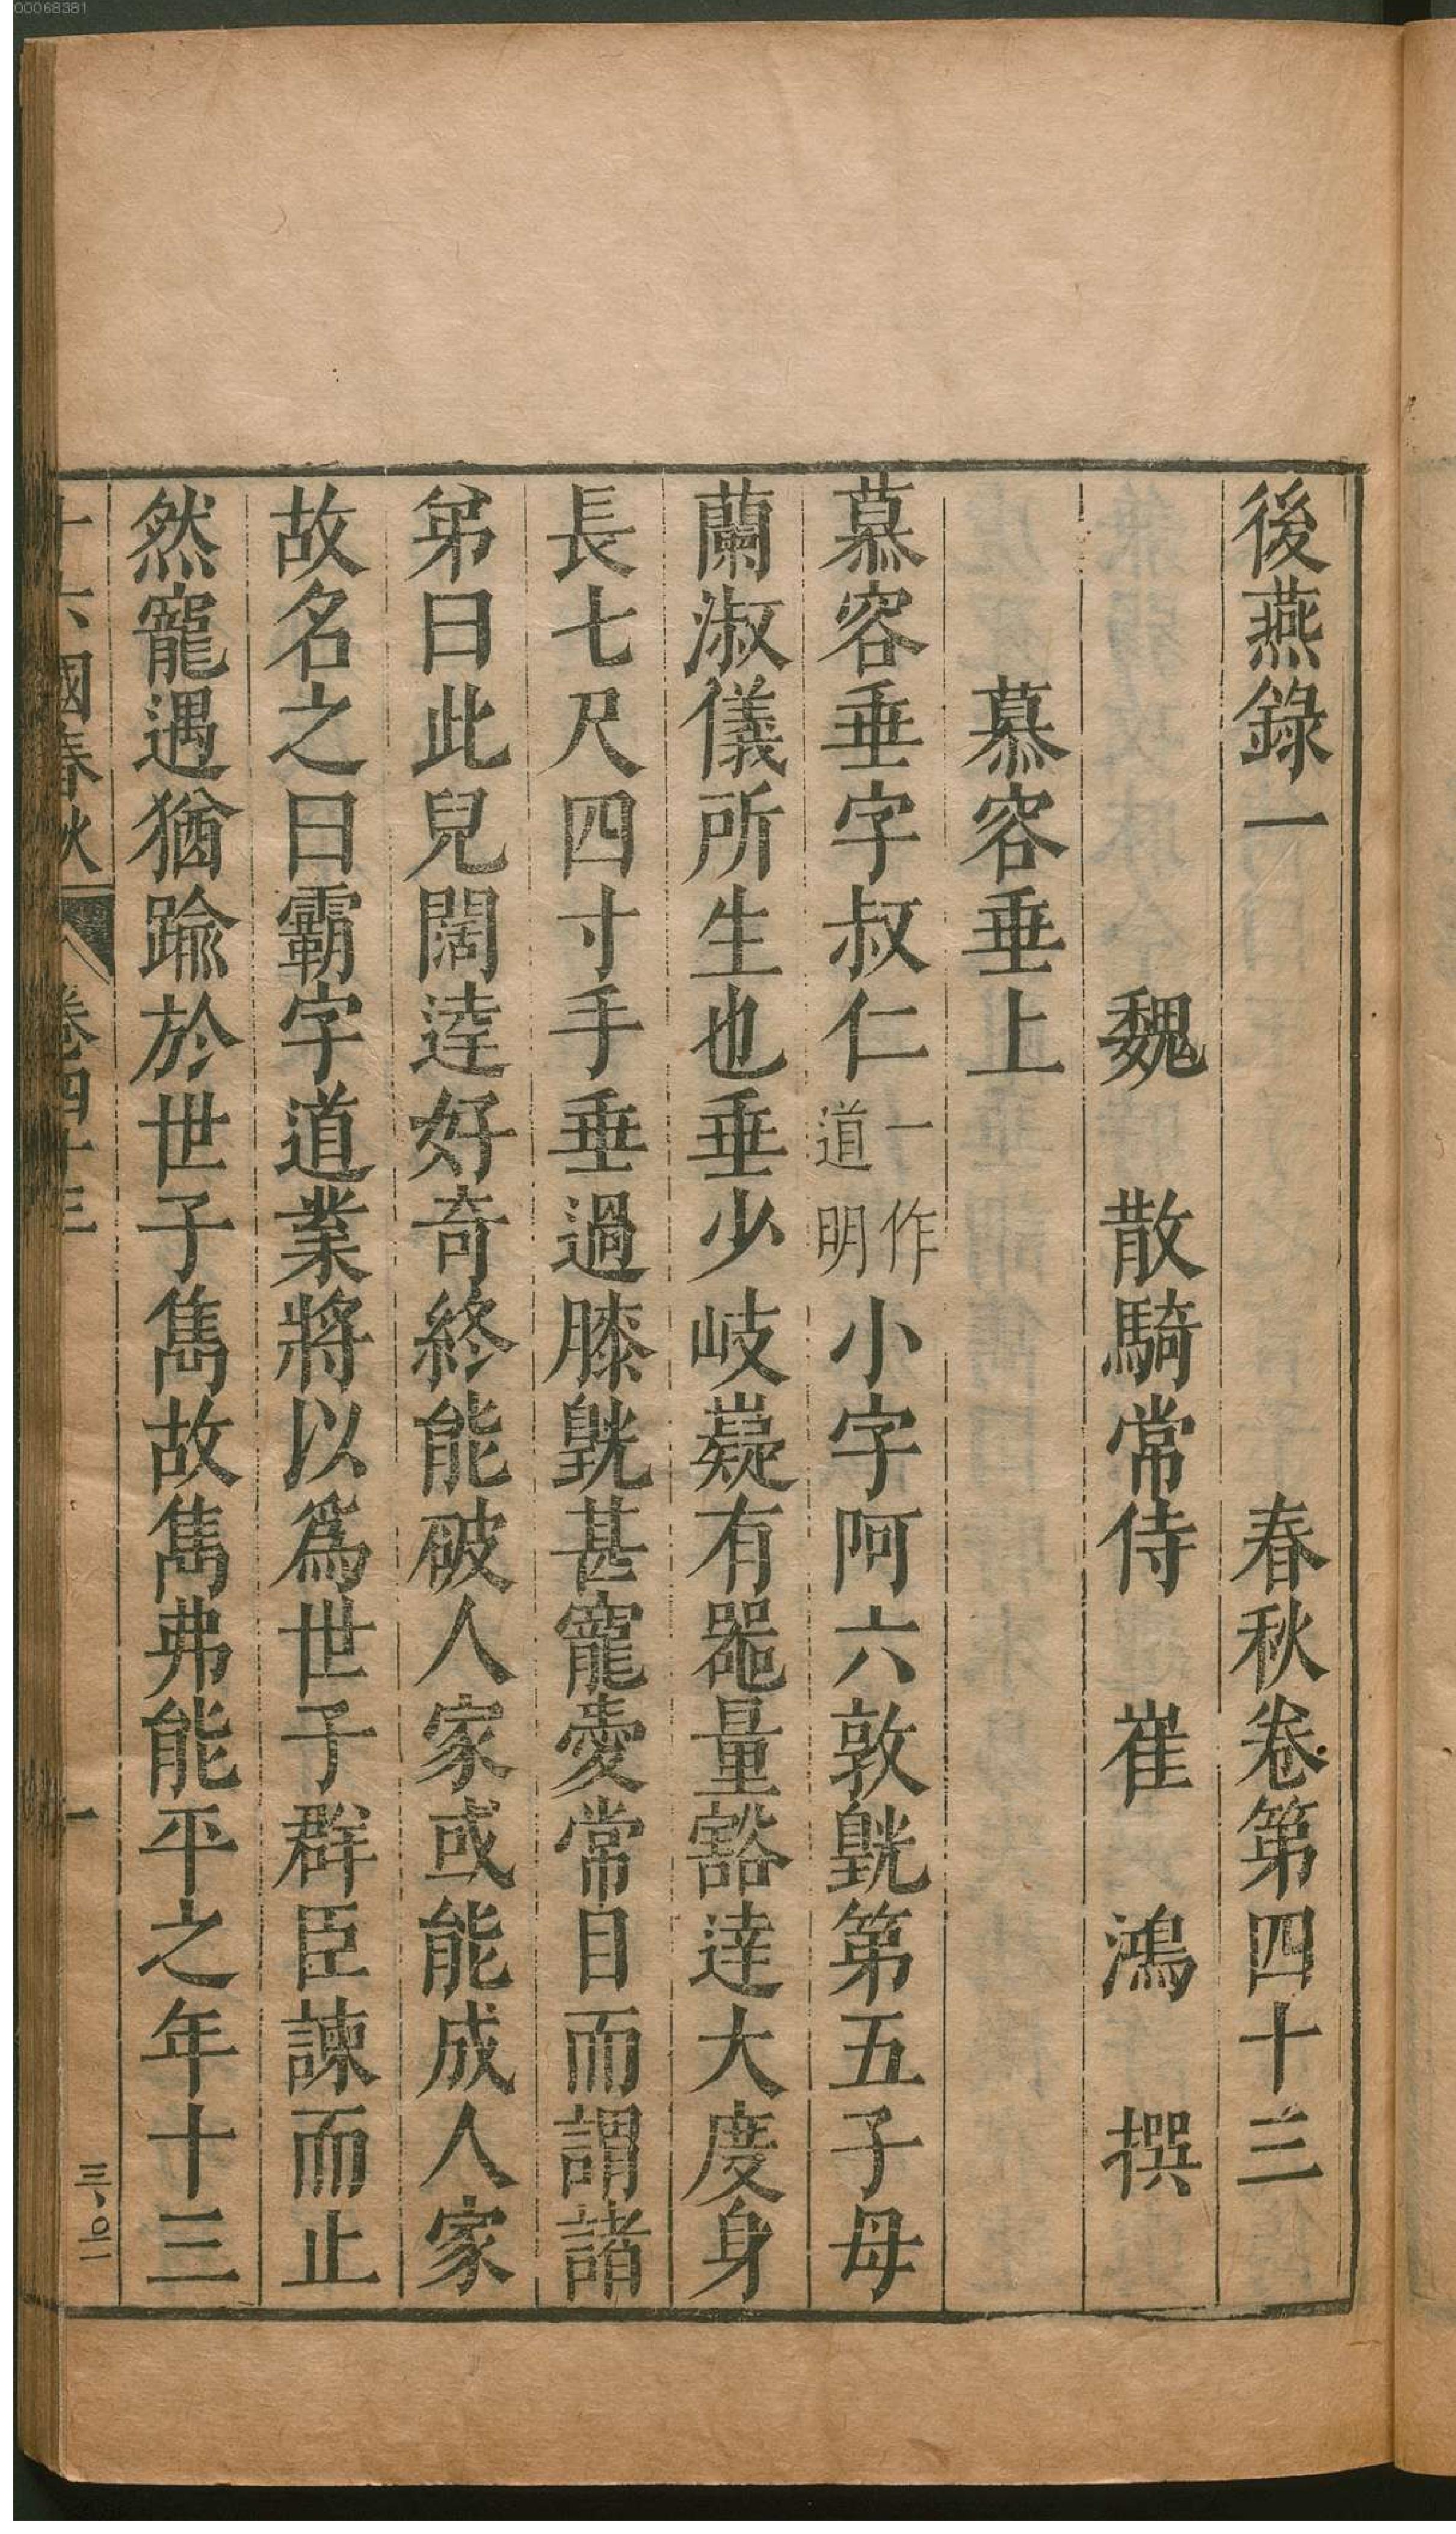 00068381
後燕錄一 春秋卷第四十三
魏 散騎常侍 崔鴻 撰
慕容垂上
慕容垂字叔仁一作道明小字阿六敦皝第五子母
蘭淑儀所生也垂少岐嶷有噐量豁達大度身
長七尺四寸手垂過膝皝甚寵愛常目而謂諸
弟曰此兒闊達好奇終能破人家或能成人家
故名之曰霸字道業將以爲世子群臣諫而止
然寵遇猶踰於世子雋故雋弗能平之年十三
十六國春秋 卷四十三 一